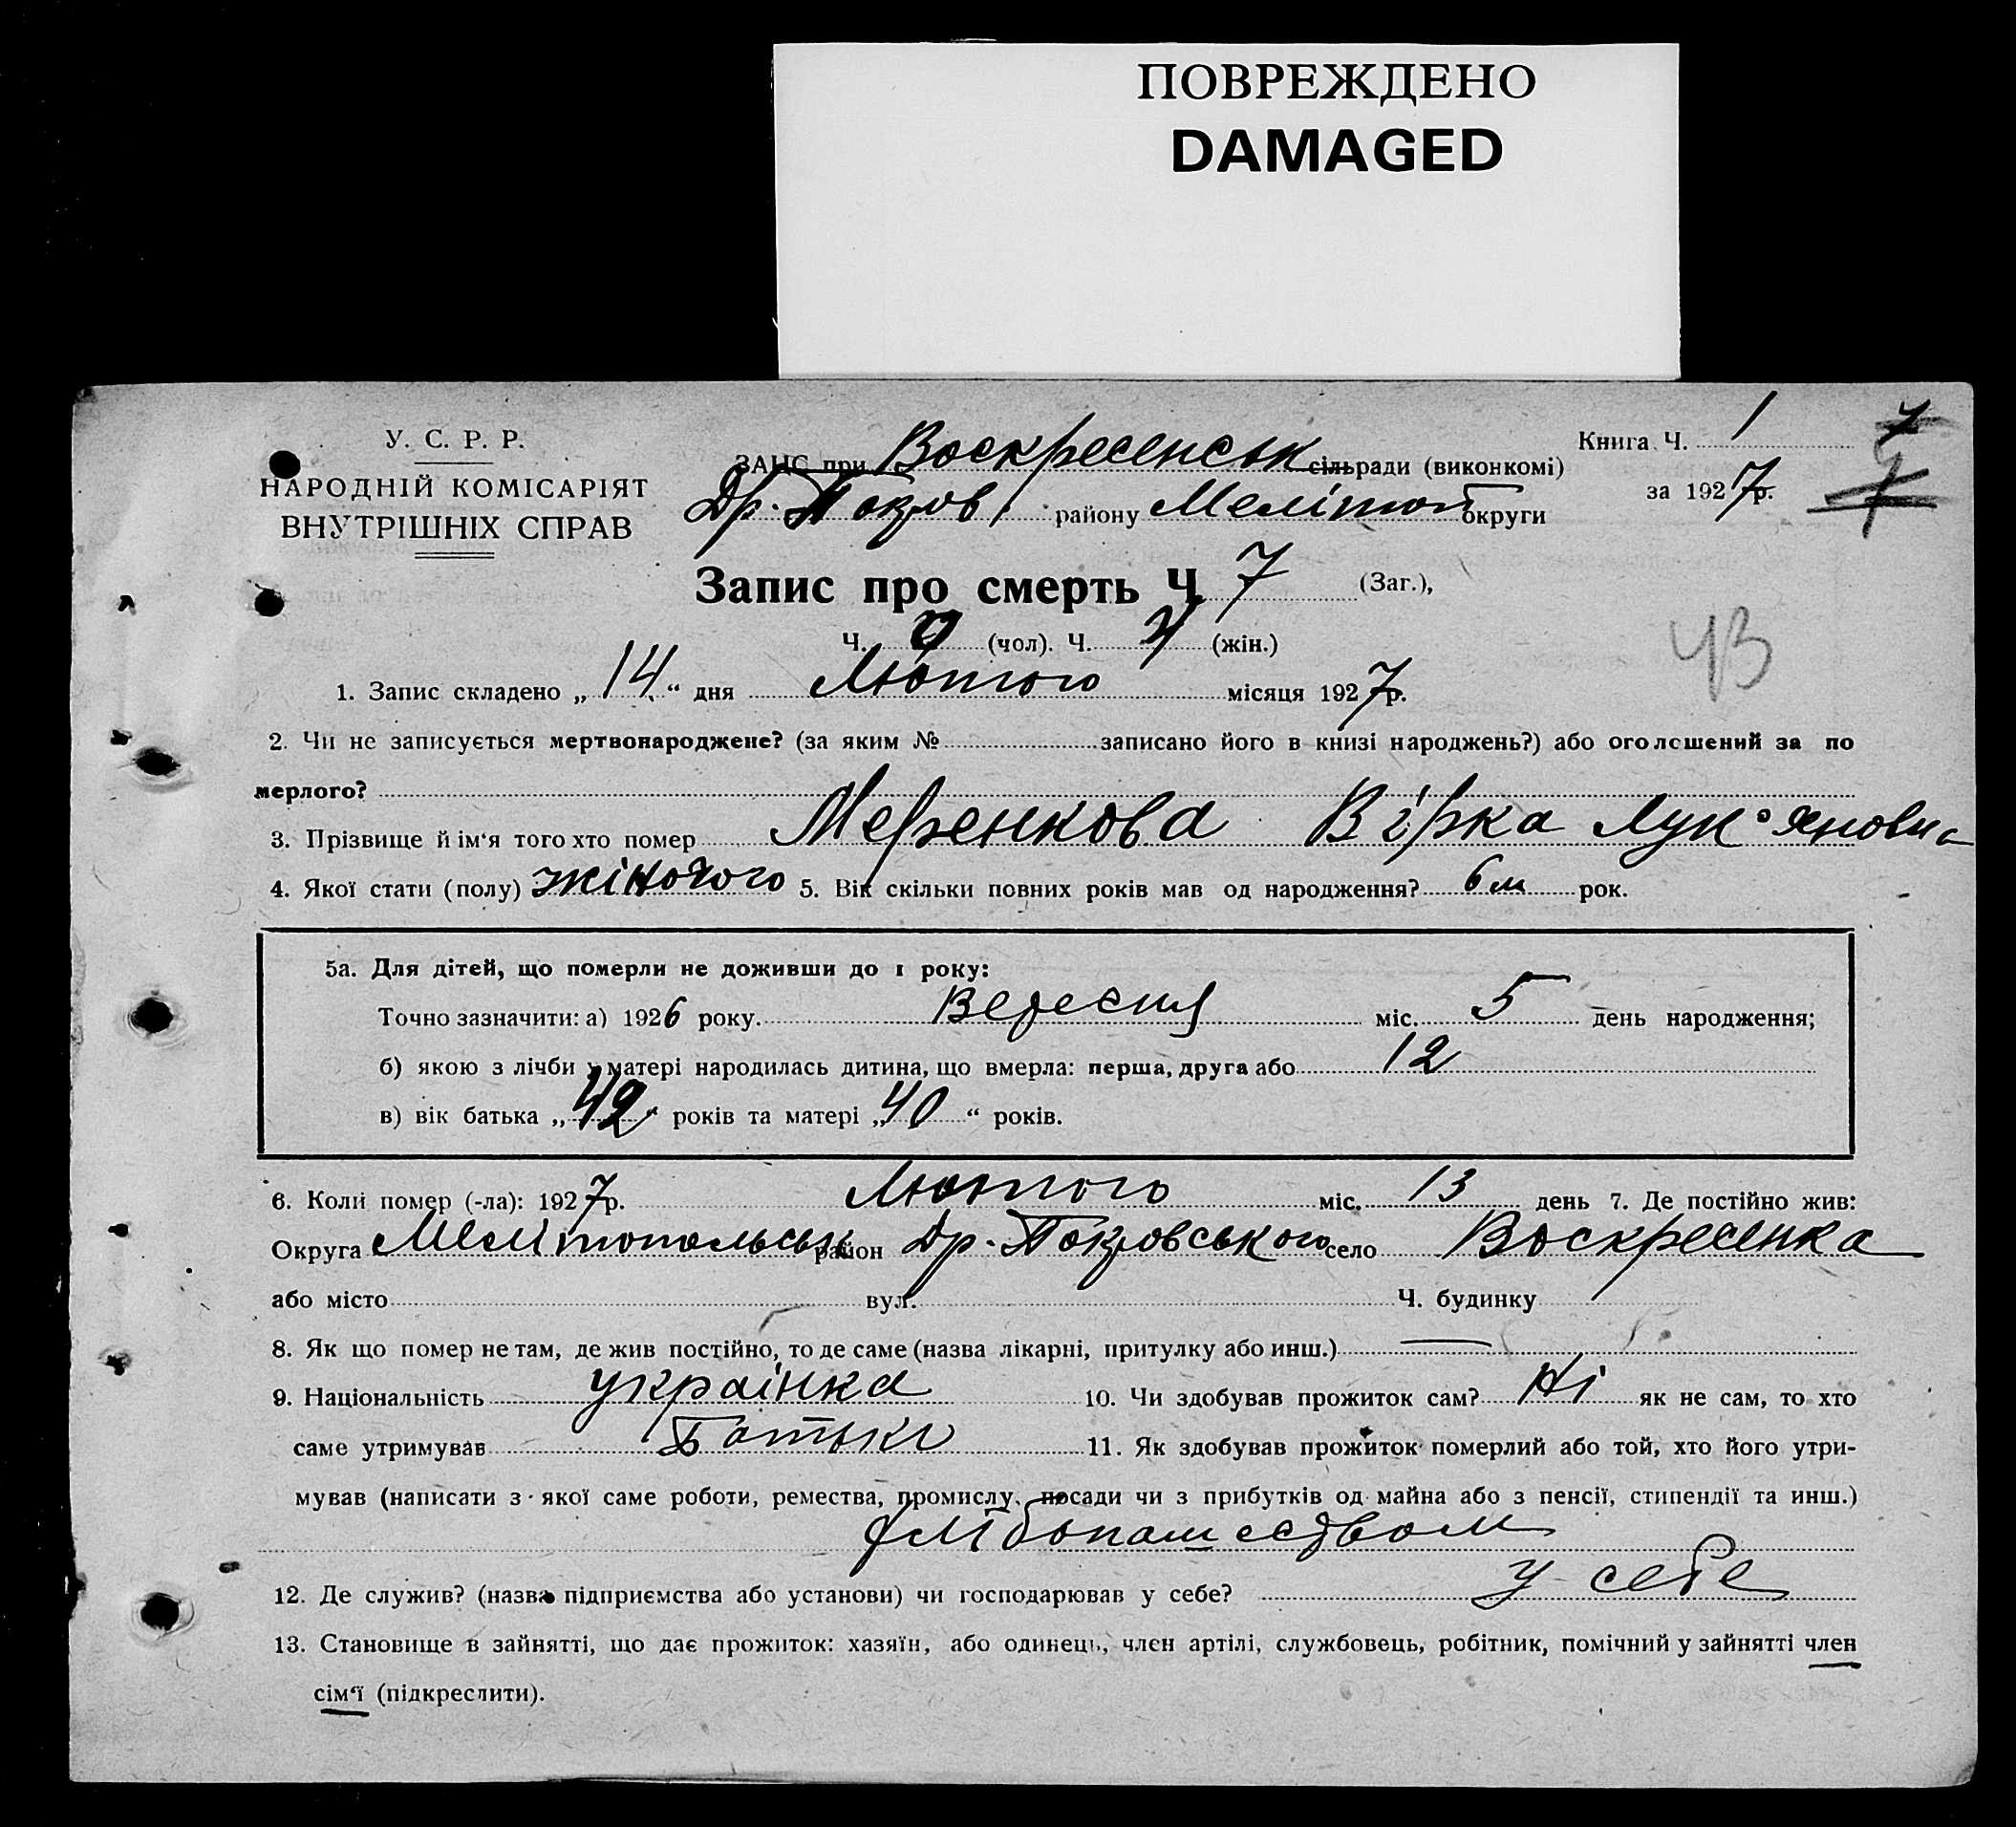 ПОВРЕЖДЕНО
DAMAGED
У. С. Р. Р.
НАРОДНІЙ КОМІСАРІЯТ
ВНУТРІШНІХ СПРАВ
ЗАГС при Воскресенськ сільради (виконкомі)
Др. Покров. району Мелітоп округи
Книга Ч. 1
за 1927 р.
Запис про смерть Ч. 7 (Заг.),
Ч. (чол). Ч. (жін.)
43
1. Запис складено „ 14 “ дня Лютого місяця 1927 р.
2. Чи не записується мертвонароджене? (за яким № записано його в книзі народжень?) або оголошений за по
мерлого?
3. Прізвище й ім‘я того хто помер Меренкова Вірка Лук'яновна
4. Якої стати (полу) жіночого 5. Вік скільки повних років мав од народження? 6 м рок.
5а. Для дітей, що померли не доживши до 1 року:
Точно зазначити: а) 1926 року. Вересня міс. 5 день народження;
б) якою з лічби у матері народилась дитина, що вмерла: перша, друга або 12
в) вік батька „ 42 “ років та матері „ 40 “ років.
6. Коли помер (-ла): 1927 р. Лютого міс. 13 день 7. Де постійно жив:
Округа Мелітопольськ район Др. Покровського село Воскресенка
або місто вул. Ч. будинку
8. Як що помер не там, де жив постійно, то де саме (назва лікарні, притулку або инш.) —
9. Національність українка 10. Чи здобував прожиток сам? Ні як не сам, то хто
саме утримував Батьки 11. Як здобував прожиток померлий або той, хто його утри-
мував (написати з якої саме роботи, ремества, промислу, посади чи з прибутків од майна або з пенсії, стипендії та инш.)
хлібопашеством
12. Де служив? (назва підприємства або установи) чи господарював у себе? у себе
13. Становище в зайнятті, що дає прожиток: хазяїн, або одинець, член артілі, службовець, робітник, помічний у зайнятті член
сім‘ї (підкреслити).